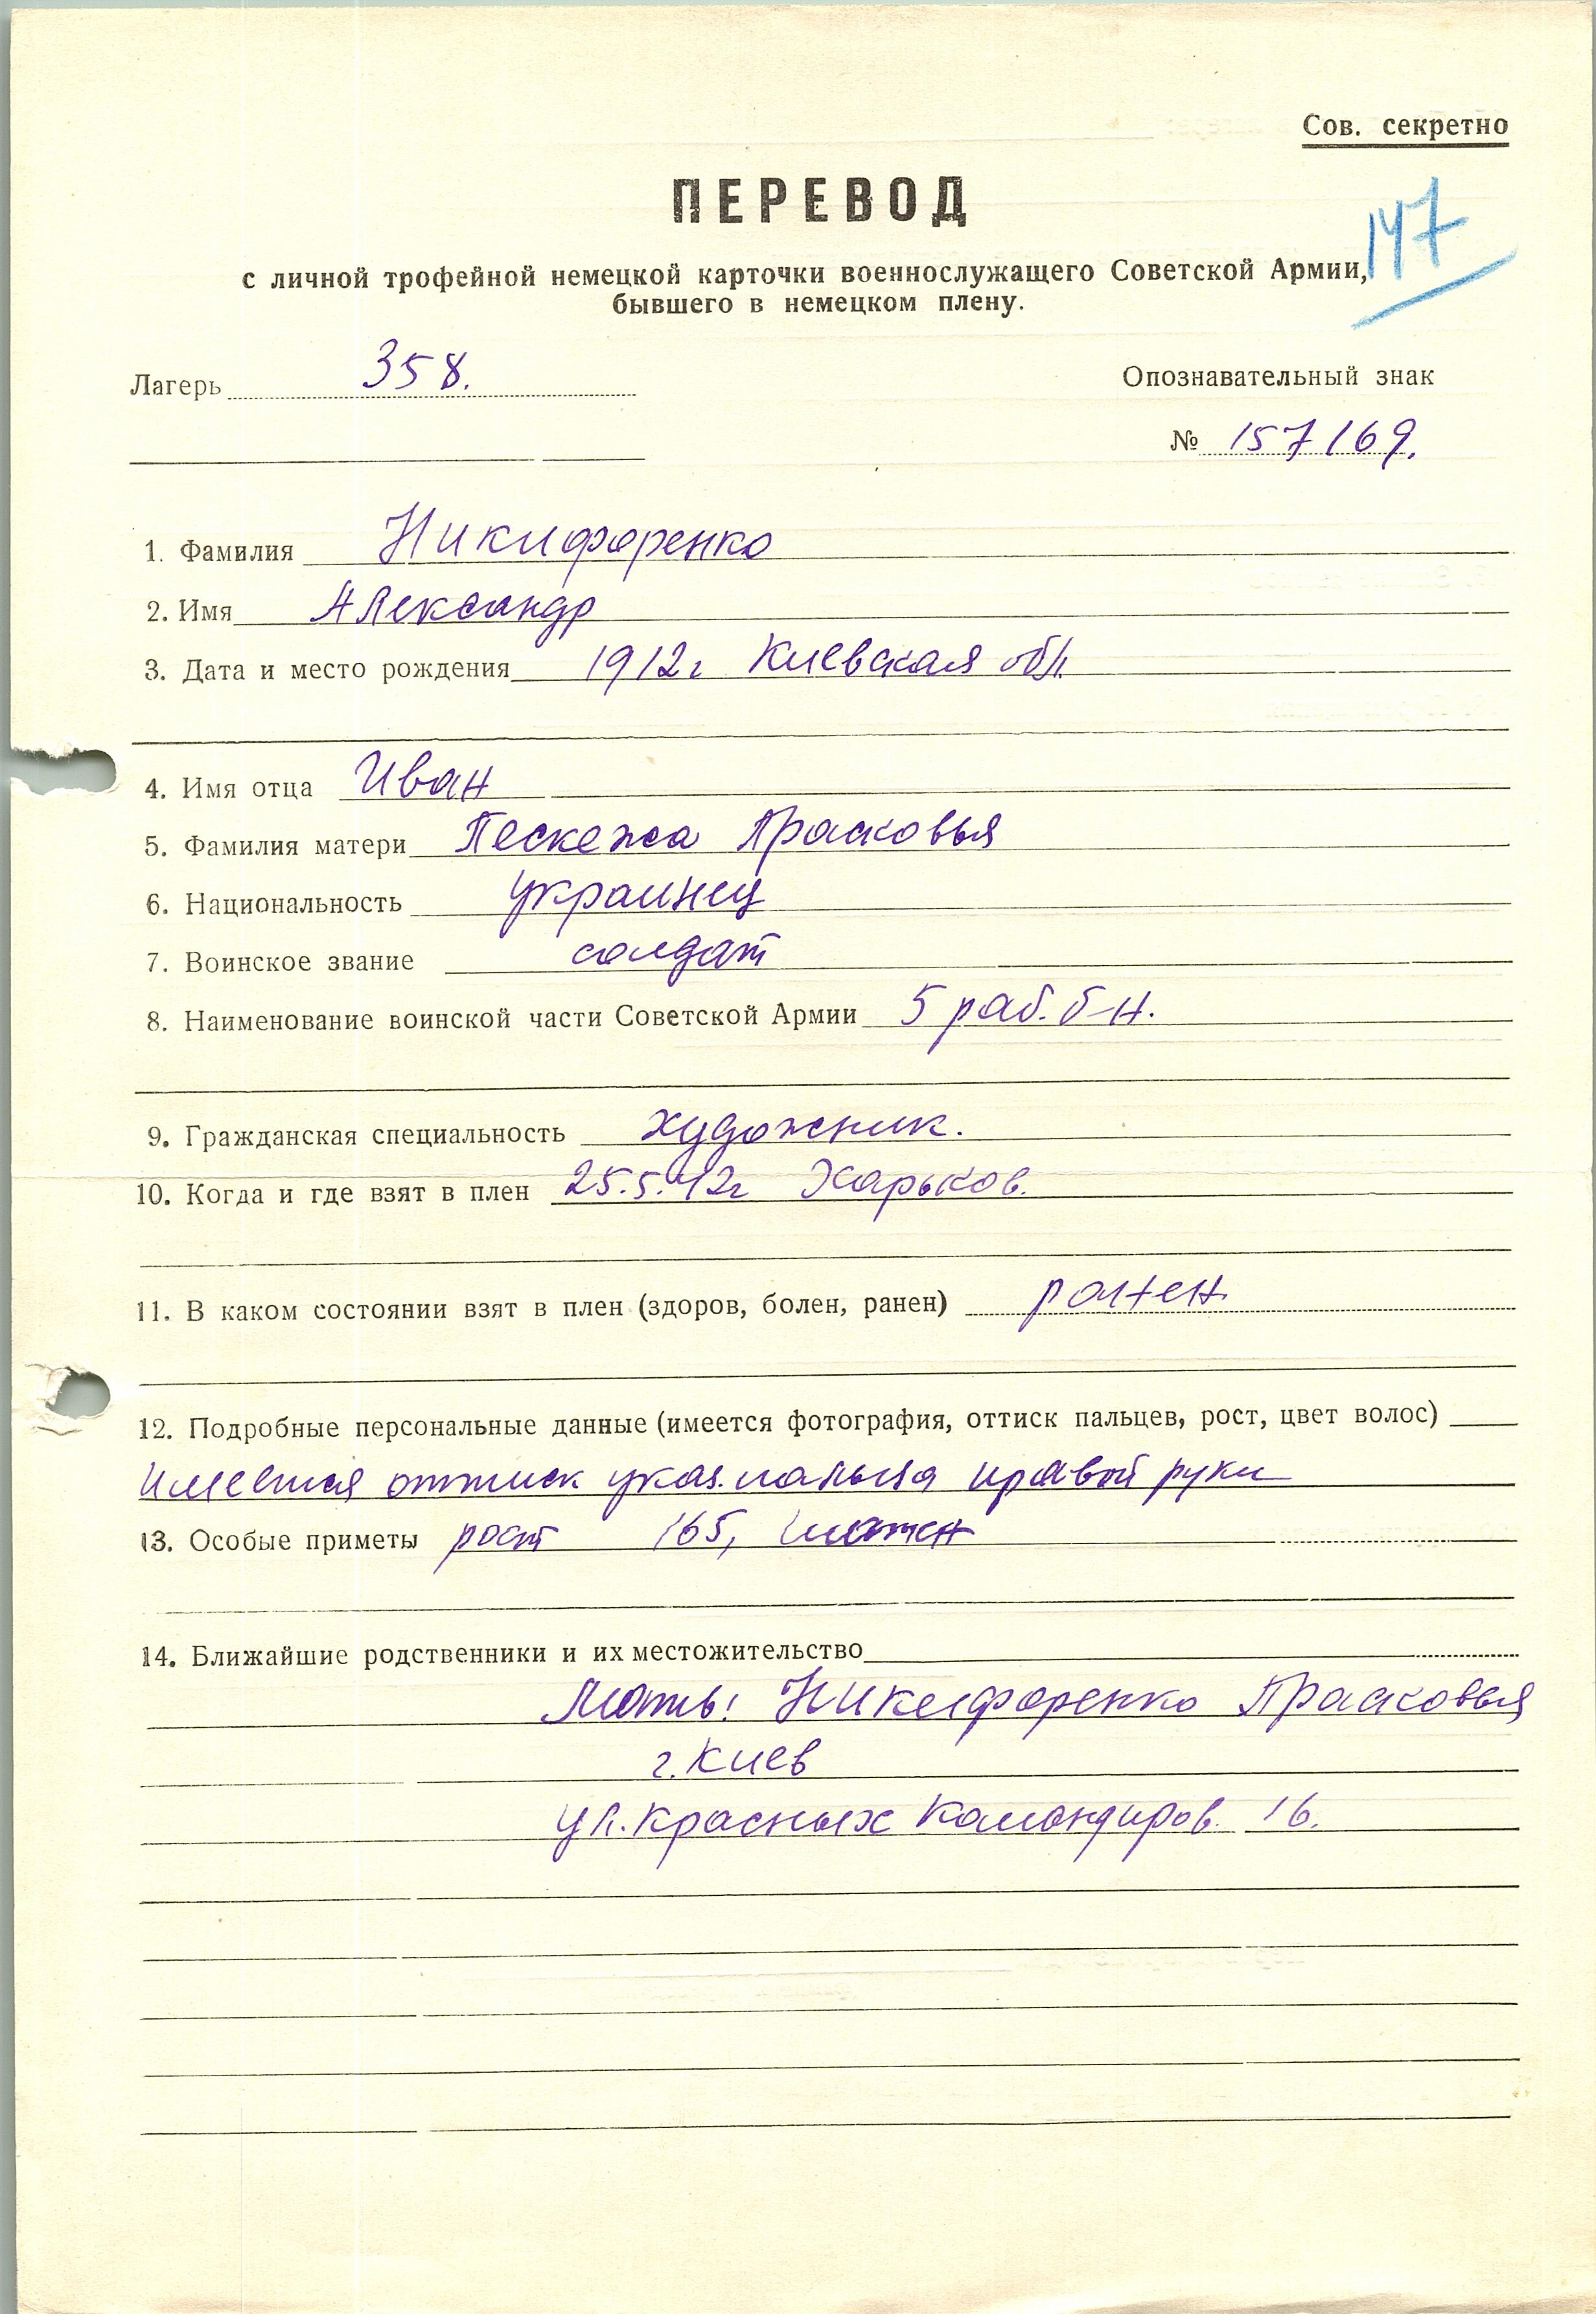 Сов. секретно
ПЕРЕВОД
147
с личной трофейной немецкой карточки военнослужащего Советской Армии,
бывшего в немецком плену.
Лагерь 358.
Опознавательный знак
№ 157169.
1. Фамилия Никифоренко
2. Имя Александр
3. Дата и место рождения 1912г Киевская обл.
4. Имя отца Иван
5. Фамилия матери Прасковья
6. Национальность украинец
7. Воинское звание солдат
8. Наименование воинской части Советской Армии 5 раб. б-н.
9. Гражданская специальность художник.
10. Когда и где взят в плен 25.5.42г Харьков.
11. В каком состоянии взят в плен (здоров, болен, ранен) ранен
12. Подробные персональные данные (имеется фотография, оттиск пальцев, рост, цвет волос)
Имеется оттиск указ. пальца правой руки
13. Особые приметы рост 165, шатен
14. Ближайшие родственники и их местожительство
Мать: Никифоренко Прасковья
г. Киев
ул. Красных Командиров 16.